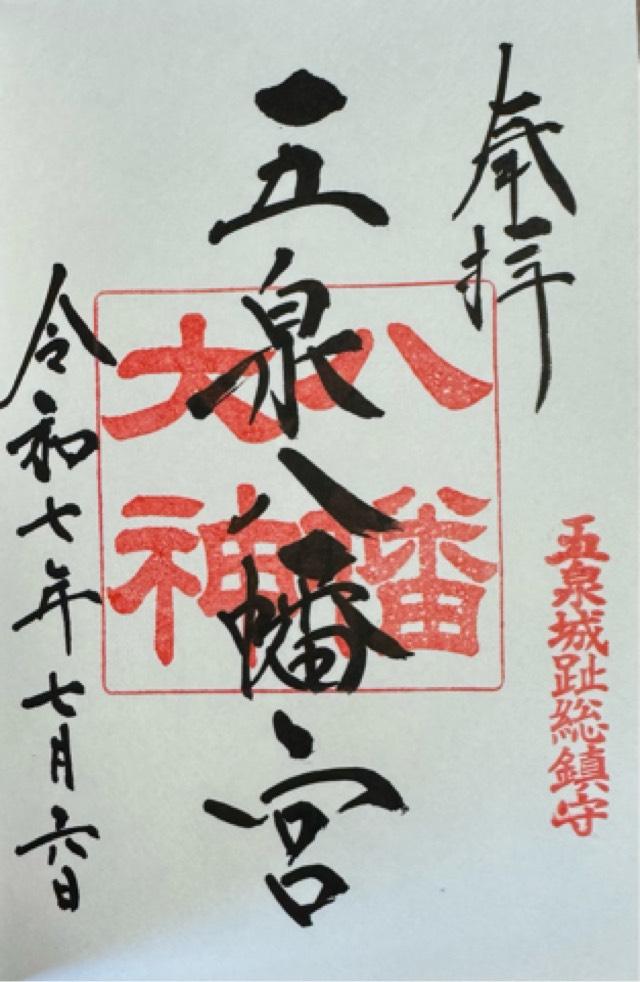 奉拝
五泉城趾総鎮守
五泉八幡宮
八幡
大神
令和七年七月六日